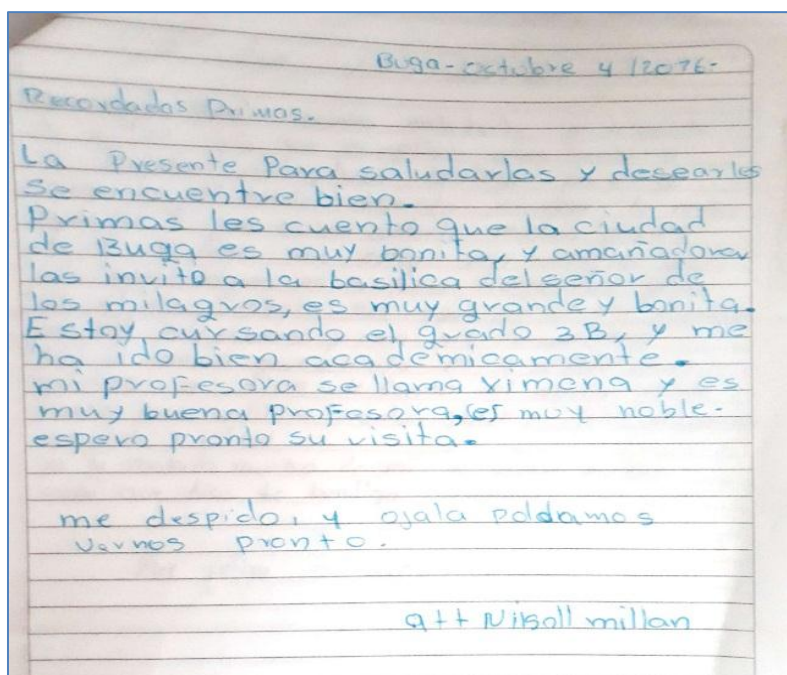 Buga-octubre 4 /2016-
Recordadas Primas.
La Presente Para saludarlas y desearles
se encuentre bien.
Primas les cuento que la ciudad
de Buga es muy bonita, y amañadora,
las invito a la basilica del señor de
los milagros, es muy grande y bonita.
Estoy cursando el grado 3B, y me
ha ido bien academicamente.
mi profesora se llama ximena y es
muy buena profesora, es muy noble.
espero pronto su visita.
me despido, y ojala poldamos
vernos pronto.
att millan